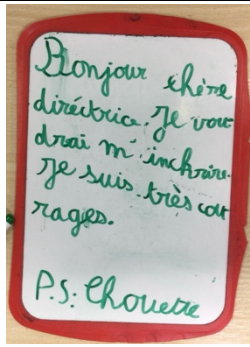 Bonjour chère
diréctrice. Je vou
drai m'inchrire.
Je suis très cou
rages.
P.S: Chouette